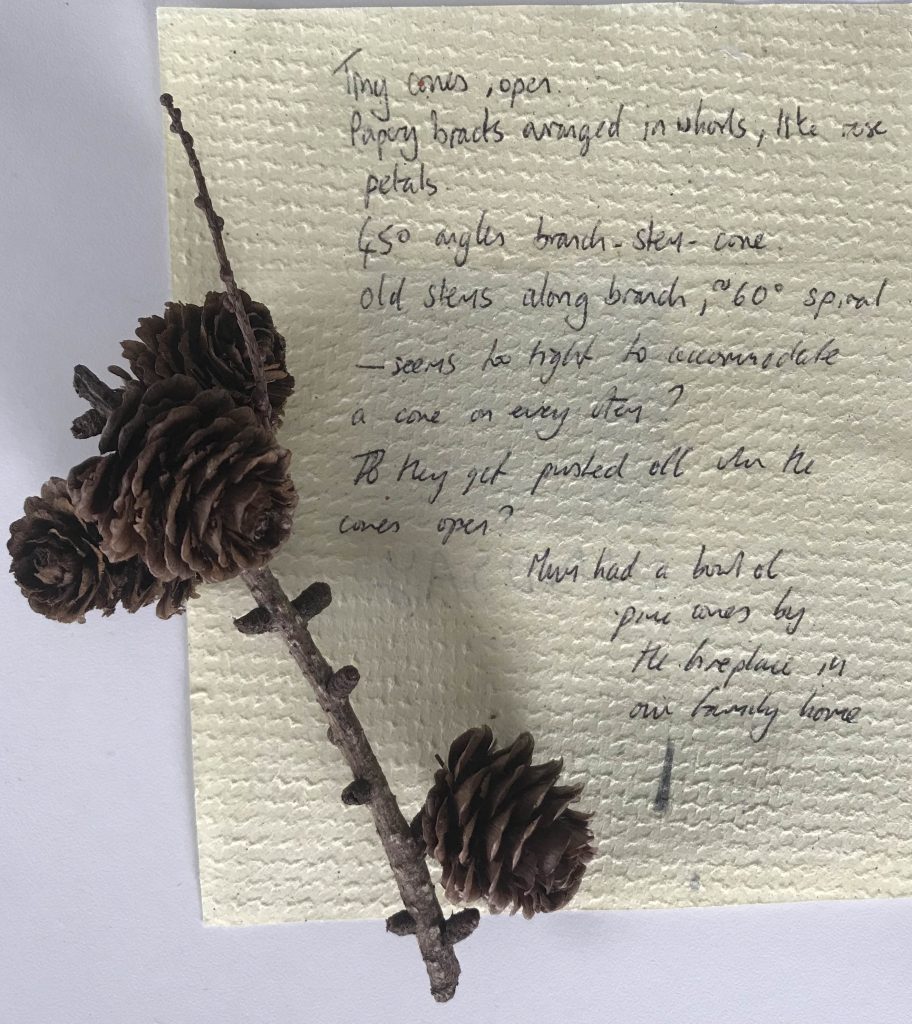 Tiny cones, open.
Papery bracts arranged in whorls, like rose
petals.
450 angles branch - stem - cone.
old stems along branch, ~60° spiral.
— seems too tight to accommodate
a cone on every stem?
Do they get pushed off when the
cones open?
Mum had a bowl of
pine cones by
the fireplace in
our family home